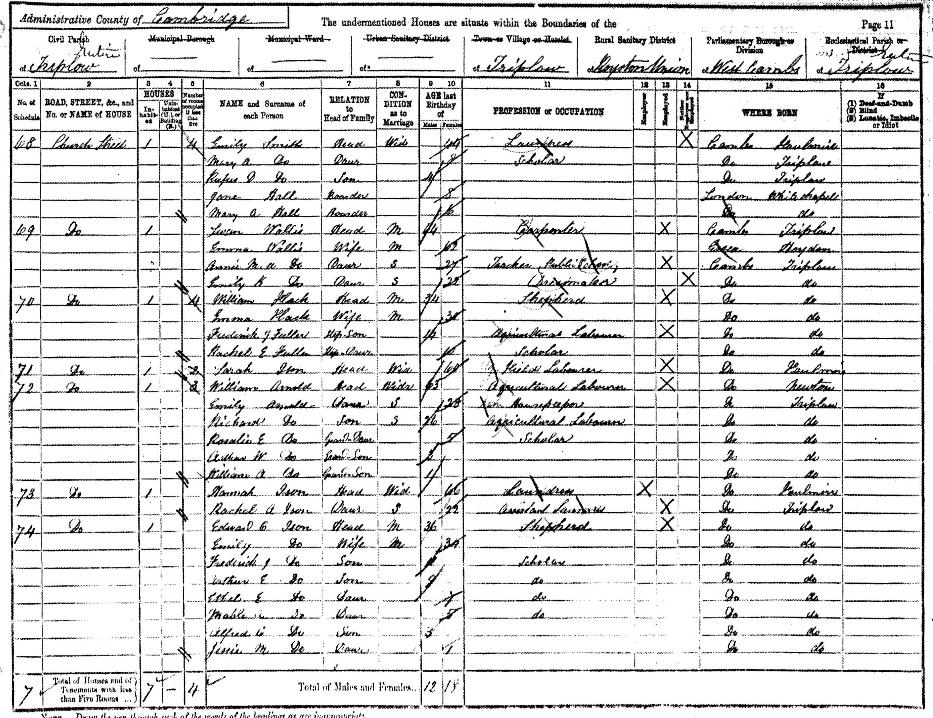 Administrative County of Cambridge The undermentioned Houses are situate within the Boundaries of the Page 11
Civil Parish Municipal Borough Municipal Ward Urban Sanitary District Town or Village or Hamlet Rural Sanitary District Parliamentary Borough or Division Ecclesiastical Parish or District
of Triplow of of of of Triplow of Royston Union of West Cambs of Triplow
Cols. 1 2 3 4 5 6 7 8 9 10 11 12 13 14 15 16
No. of Schedule ROAD, STREET, &c., and No. or NAME of HOUSE HOUSES Inhabited NAME and Surname of each Person RELATION to Head of Family CONDITION as to Marriage AGE last Birthday of Males Females PROFESSION or OCCUPATION Employer Employed WHERE BORN (1) Deaf-and-Dumb (2) Blind (3) Lunatic, Imbecile or Idiot
68 Church Street 1 4 Emily Smith Head Wid 44 X Cambs
Mary A Do Daur 8 Scholar Do Triplow
Rufus D Do Son Do Triplow
Jane Hall Boarder 8 London Whitechapel
Mary A Hall Boarder Do do
69 Do 1 Wallis Head M 64 Carpenter X Cambs Triplow
Emma Wallis Wife M 62 Essex Heydon
Annie M. A Do Daur S 27 Teacher (Public School) X Cambs Triplow
Emily K Do Daur S 22 Dressmaker X Do do
70 Do 1 4 William Head M 34 Shepherd X Do do
Emma Wife M Do do
Frederick J Fuller Step Son 14 Agricultural Labourer X Do do
Rachel E Fuller Step Daur Scholar Do do
71 Do 1 Sarah Ison Head Wid 60 Field Labourer X Do
72 Do 1 William Arnold Head Widr 63 Agricultural Labourer X Do Newton
Emily Arnold Daur S 28 Housekeeper Do Triplow
Richard Do Son S 26 Agricultural Labourer Do do
Rosalie E Do Grand Daur Scholar Do do
Arthur W Do Grand Son 2 Do do
William A Do Grand Son Do do
73 Do 1 Hannah Ison Head Wid 66 Laundress X Do
Rachel A Ison Daur S 22 Assistant X Do Triplow
74 Do 1 Edward C Ison Head M 36 Shepherd X Do do
Emily Do Wife M 34 Do do
Frederick J Do Son Scholar Do do
Arthur E Do Son 9 do Do do
Ethel E Do Daur 7 do Do do
Do Daur 5 do Do do
Alfred Do Son 3 Do do
Jessie M Do Daur 1 Do do
7 Total of Houses and of Tenements with less than Five Rooms 7 – 4 Total of Males and Females... 12 18
Note.—Draw the pen through such of the words of the headings as are inappropriate.